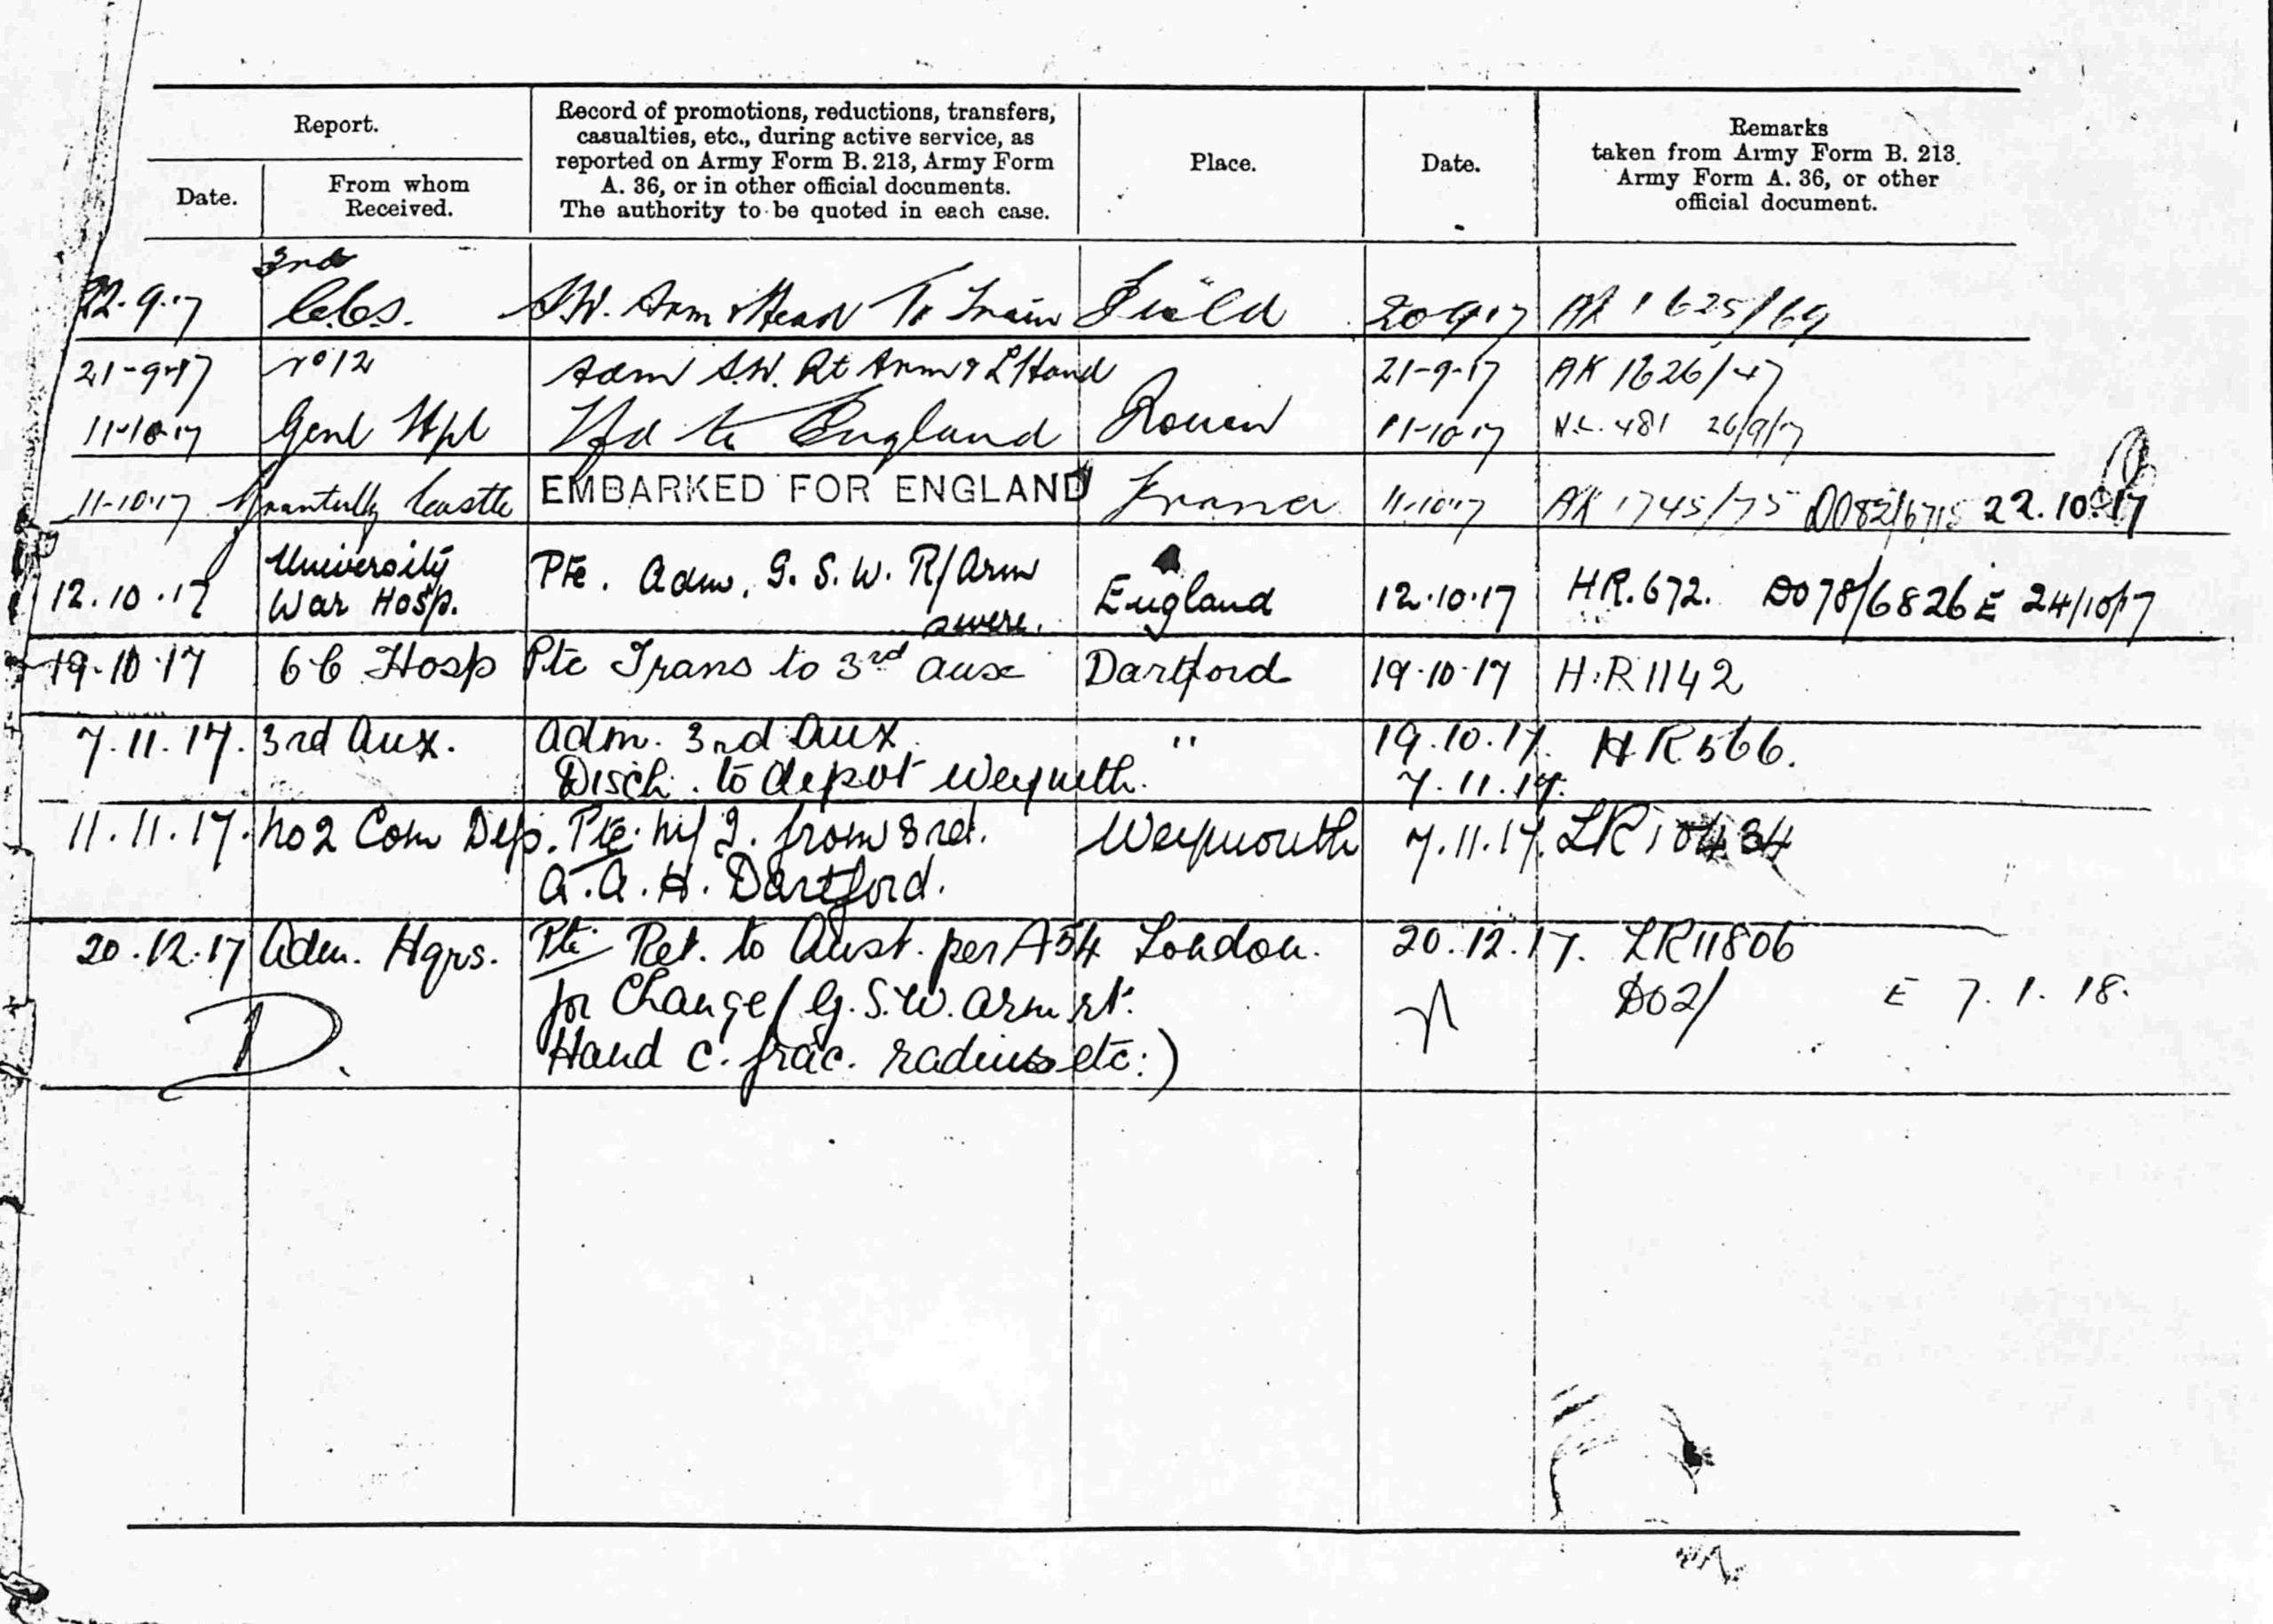 Report.
Record of promotions, reductions, transfers,
casualties, etc., during active service, as
reported on Army Form B. 213, Army Form
A. 36, or in other official documents.
The authority to be quoted in each case.
Place.
Date.
Remarks
taken from Army Form B. 213,
Army Form A. 36, or other
official document.
Date.
From whom
Received.
3rd
22.9.17 C.C.S. S.W. Arm & Head To Train Field 20.9.17 AK 1625/69
21-9-17 No 12 Adm S.W. Rt Arm & L/Hand 21-9-17 AK 1626/47
11-10-17 Genl Hpl Tfd to England Rouen 11-10-17 N.L. 481 26/9/17
11-10-17 Grantully Castle EMBARKED FOR ENGLAND France 11-10-17 AK 1745/75 22.10.17
12.10.17 University
War Hosp. Pte. Adm. G.S.W. R/Arm
severe. England 12.10.17 HR.672. DO78/6826 E 24/10/17
19.10.17 Hosp Pte Trans to 3rd Aux Dartford 19.10.17 H.R 1142
7.11.17. 3rd Aux. Adm. 3rd Aux. " 19.10.17. H R 566.
Disch. to depot Weymth. 7.11.17.
11.11.17. No 2 Com Dep. Pte. M/I. from 3rd. Weymouth 7.11.17. LR
A.A.H. Dartford.
20.12.17 Adm. Hqrs. Pte Ret. to Aust. per A54 London. 20.12.17. LR11806
for Change (G.S.W. arm rt. DO2/ E 7.1.18.
D. Hand c. frac. radius etc.)